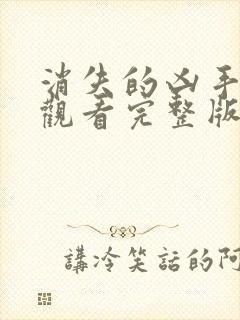 消失的凶手
觀看完整版
講冷笑話的阿